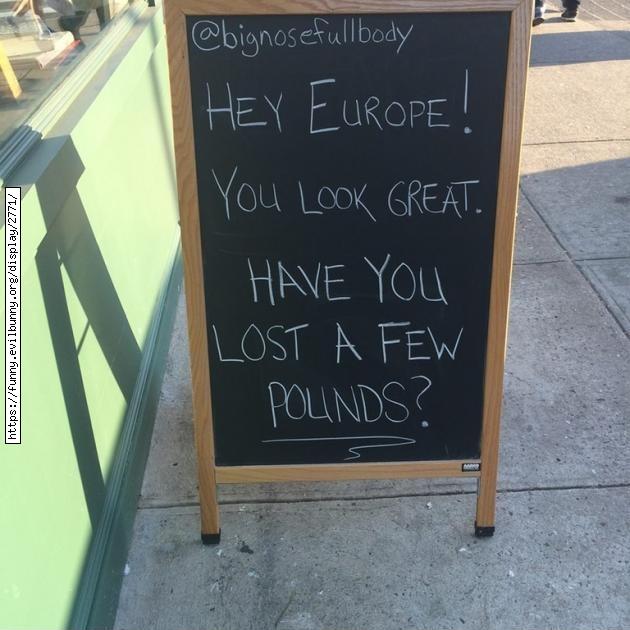 @bignosefullbody
HEY EUROPE!
YOU LOOK GREAT.
HAVE YOU
LOST A FEW
POUNDS?
https://funny.evilbunny.org/display/2771/